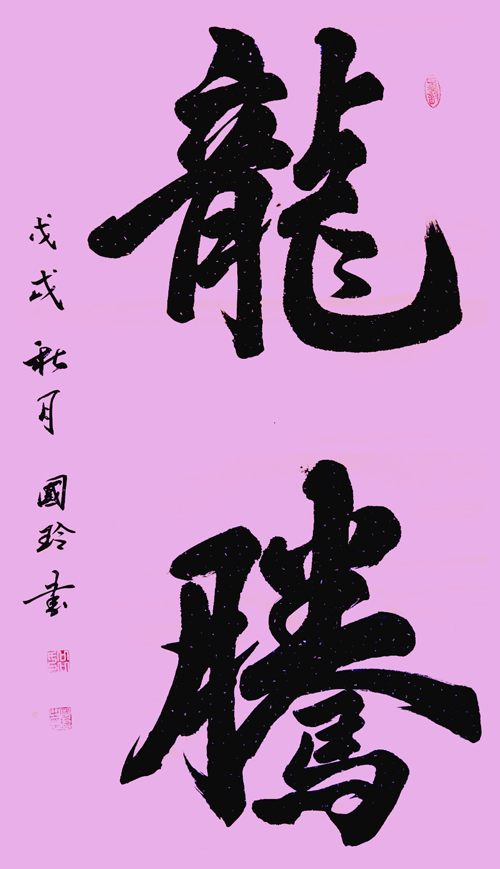 龍騰
戊戌秋月國玲書